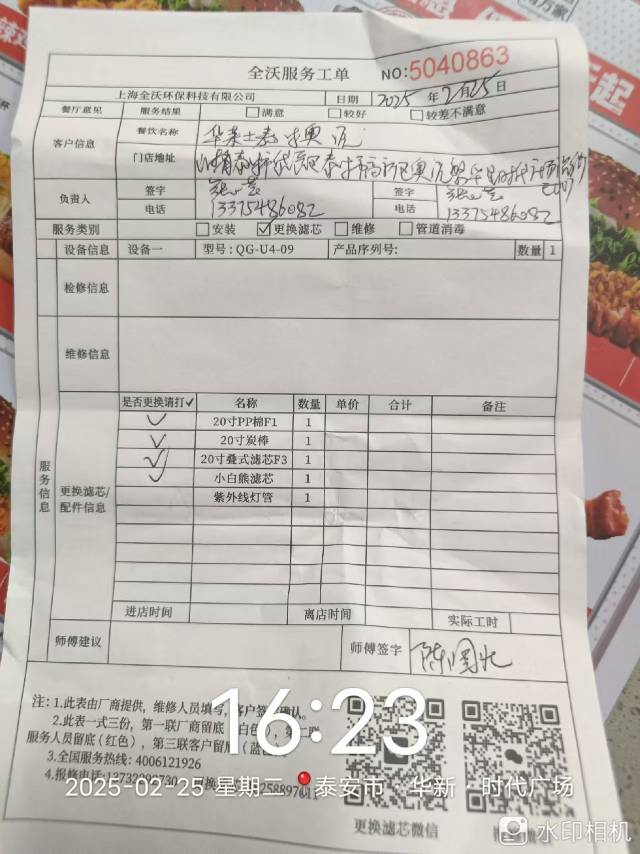 全沃服务工单 NO:5040863
上海全沃环保科技有限公司 日期 2025 年 2月25日
餐厅意见 服务结果 满意 较好 较差不满意
客户信息 餐饮名称 华莱士泰
门店地址
负责人 签字 签字
电话 13375486082 电话 13375486082
服务类别 安装 ☑更换滤芯 维修 管道消毒
设备信息 设备一 型号:QG-U4-09 产品序列号: 数量 1
检修信息
维修信息
服务信息
更换滤芯/
配件信息
是否更换请打✓ 名称 数量 单价 合计 备注
✓ 20寸PP棉F1 1
✓ 20寸炭棒 1
✓ 20寸叠式滤芯F3 1
✓ 小白熊滤芯 1
紫外线灯管 1
进店时间 离店时间 实际工时
师傅建议 师傅签字 陈国
注:1.此表由厂商提供,维修人员填写,客户签字确认。
2.此表一式三份,第一联厂商留底(白色),第二联
服务人员留底(红色),第三联客户留底(蓝色)
3.全国服务热线:4006121926
4.报修电话:
更换滤芯微信
16:23
2025-02-25 星期二 泰安市·华新·时代广场
水印相机